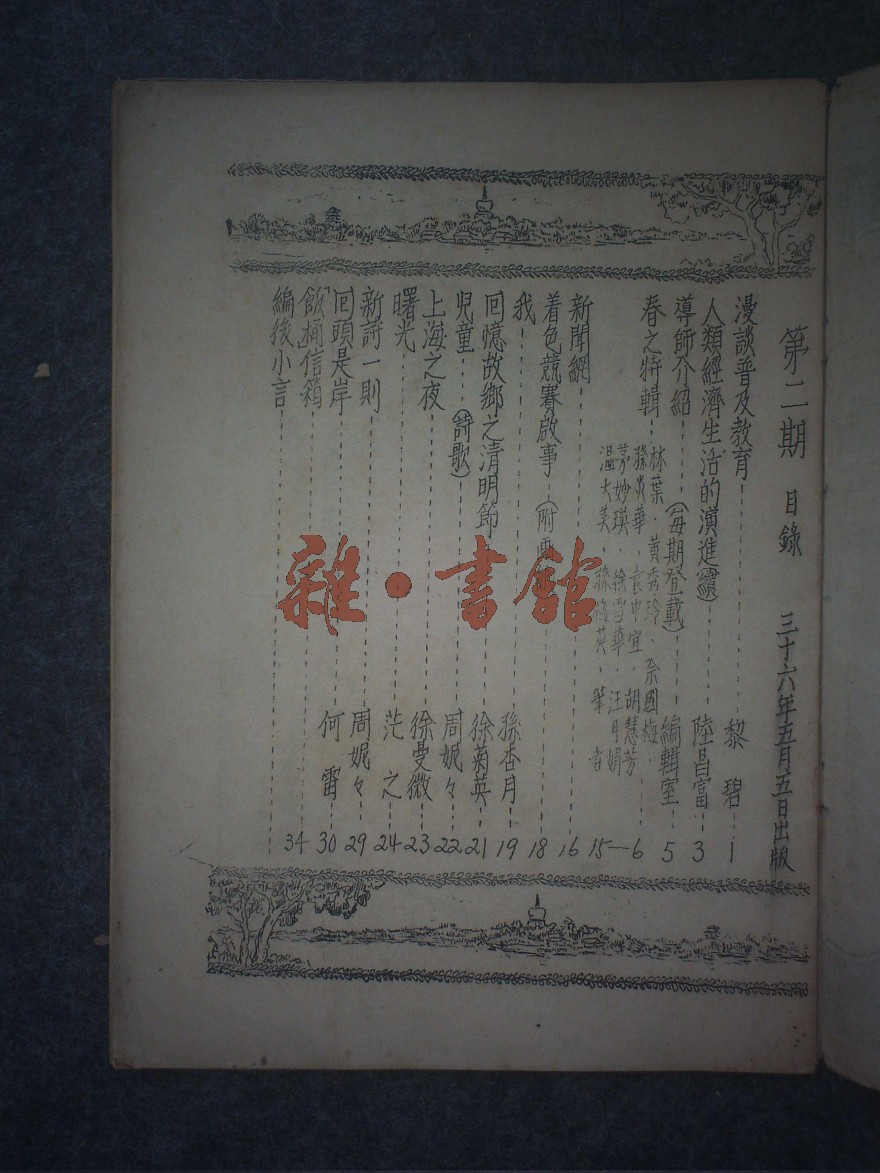 第二期 目錄 三十六年五月五日出版
漫談普及教育 黎碧 1
人類經濟生活的演進(續) 陸昌富 3
導師介紹(每期登載) 編輯室 5
春之特輯 林葉、黃秀玲、 國梅、 6—15
孫 華 袁 宜、胡慧芳
妙瑛、徐雪華、汪月娟
溫大美 孫梅英、筆者
新聞網 16
着色競賽啟事(附 18
我 孫杏月 19
回憶故鄉之清明節 徐菊英 21
兒童(詩歌) 周妮々 22
上海之夜 徐曼微 23
曙光 茫之 24
新詩一則 周妮々 29
回頭是岸 何雷 30
「飯桶」信箱 34
編後小言
雜·書館